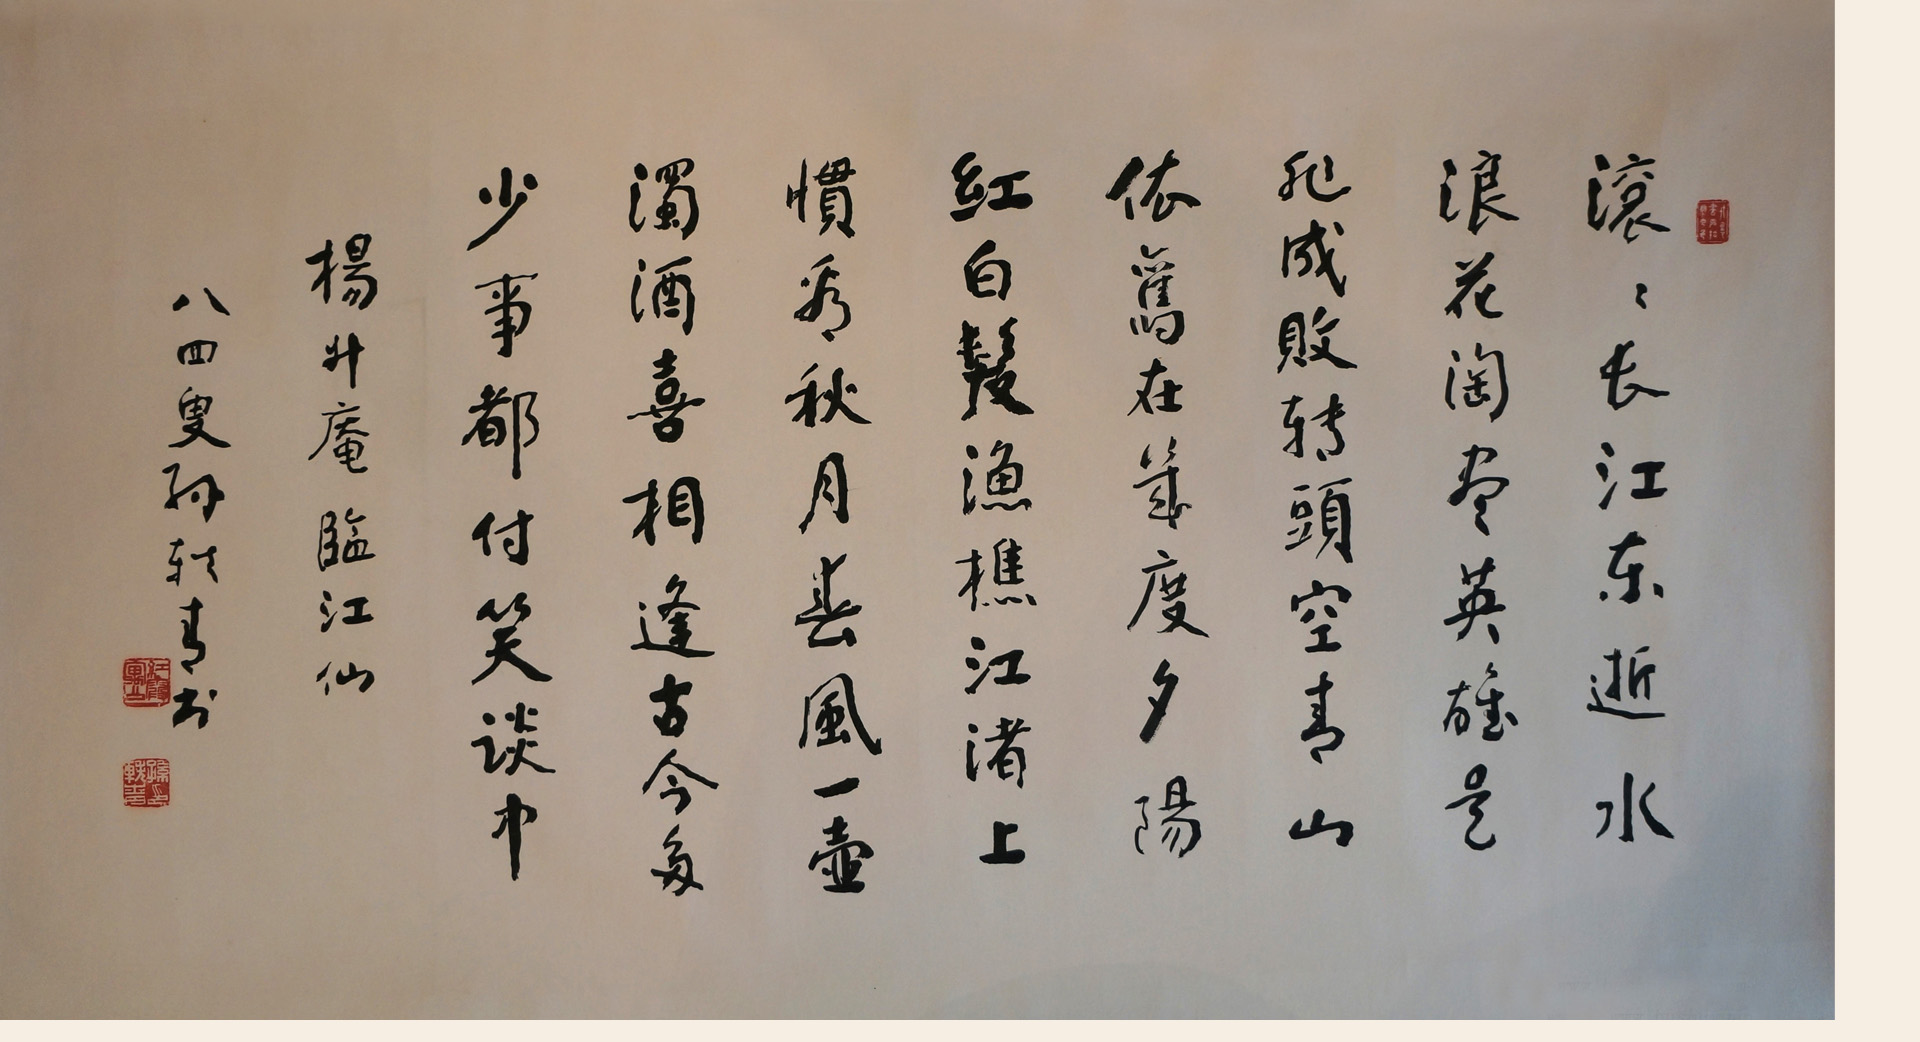 滾〻长江东逝水
浪花淘尽英雄是
非成敗转頭空青山
依舊在幾度夕陽
紅白髮漁樵江渚上
慣看秋月春風一壺
濁酒喜相逢古今多
少事都付笑谈中
楊升庵臨江仙
八四叟孙轶青书